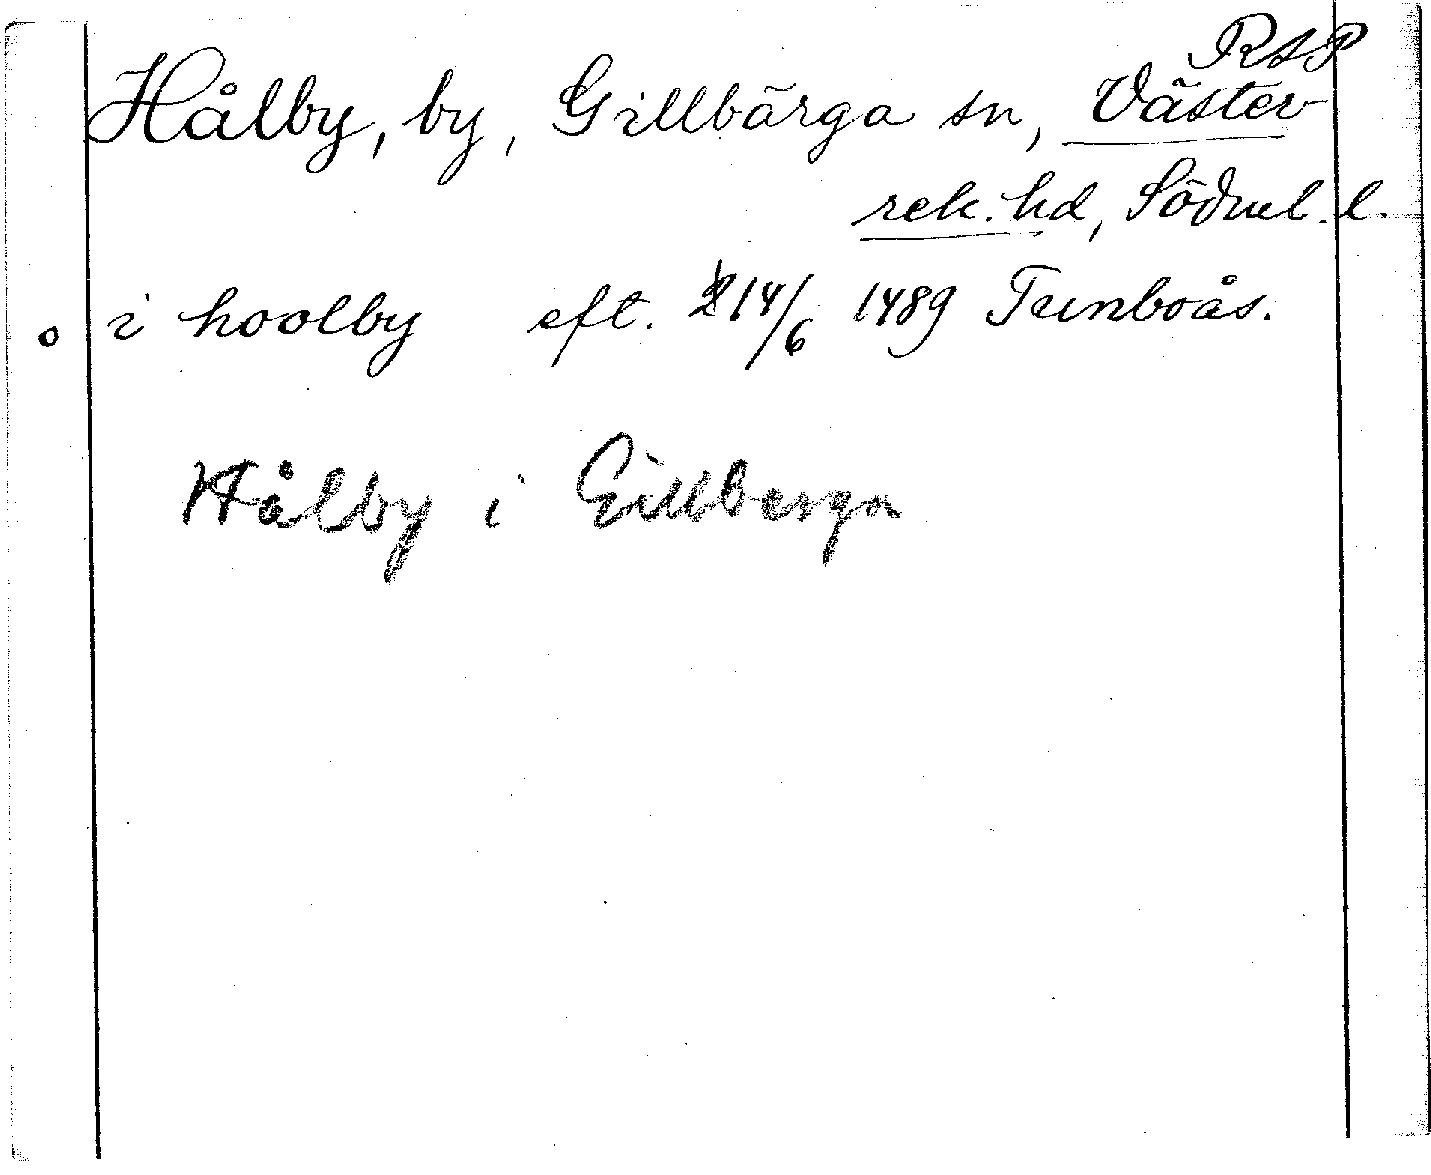 RAP
Hålby, by, Gillbärga sn, Väster-
rek. hd, Söderml. l.
o i hoolby eft. 14/6 1489 Tunboås.
Hålby i Gillberga